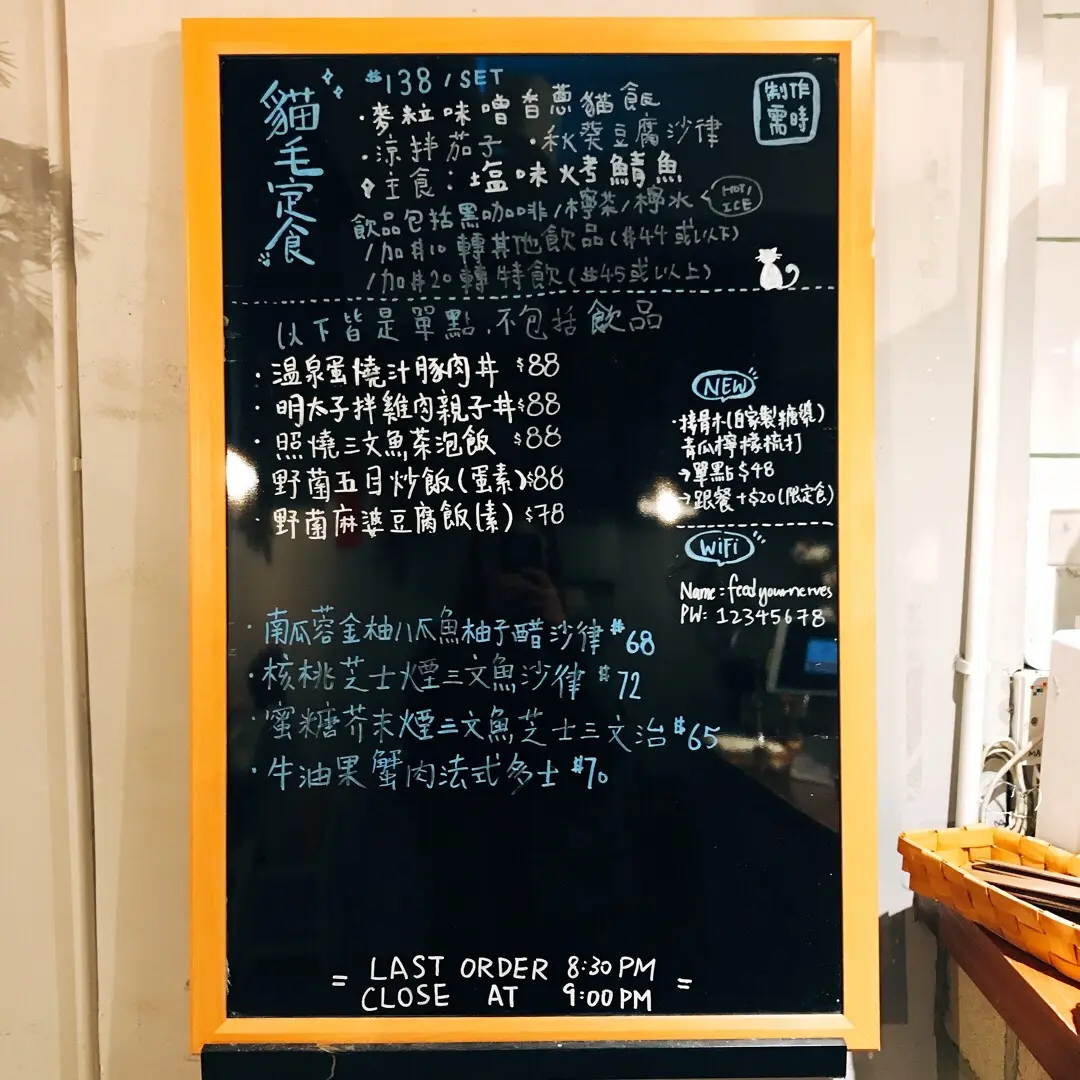 貓毛定食
$138 / SET
制作
需時
· 麥粒味噌香蔥貓飯
· 涼拌茄子 · 秋葵豆腐沙律
主食：塩味烤鯖魚
飲品包括黑咖啡/檸茶/檸水
HOT/
ICE
/加$10 轉其他飲品($44或以下)
/加$20 轉特飲($45或以上)
以下皆是單點，不包括飲品
· 温泉蛋燒汁豚肉丼 $88
· 明太子拌雞肉親子丼$88
· 照燒三文魚茶泡飯 $88
· 野菌五目炒飯(蛋素)$88
· 野菌麻婆豆腐飯(素) $78
NEW
· 接骨木(自家製糖漿)
青瓜檸檬梳打
→單點$48
→跟餐+$20(限定食)
WiFi
Name: feedyournerves
PW: 12345678
· 南瓜蓉金柚八爪魚柚子醋沙律 $68
· 核桃芝士煙三文魚沙律 $72
· 蜜糖芥末煙三文魚芝士三文治 $65
· 牛油果蟹肉法式多士 $70
= LAST ORDER 8:30 PM =
CLOSE AT 9:00 PM